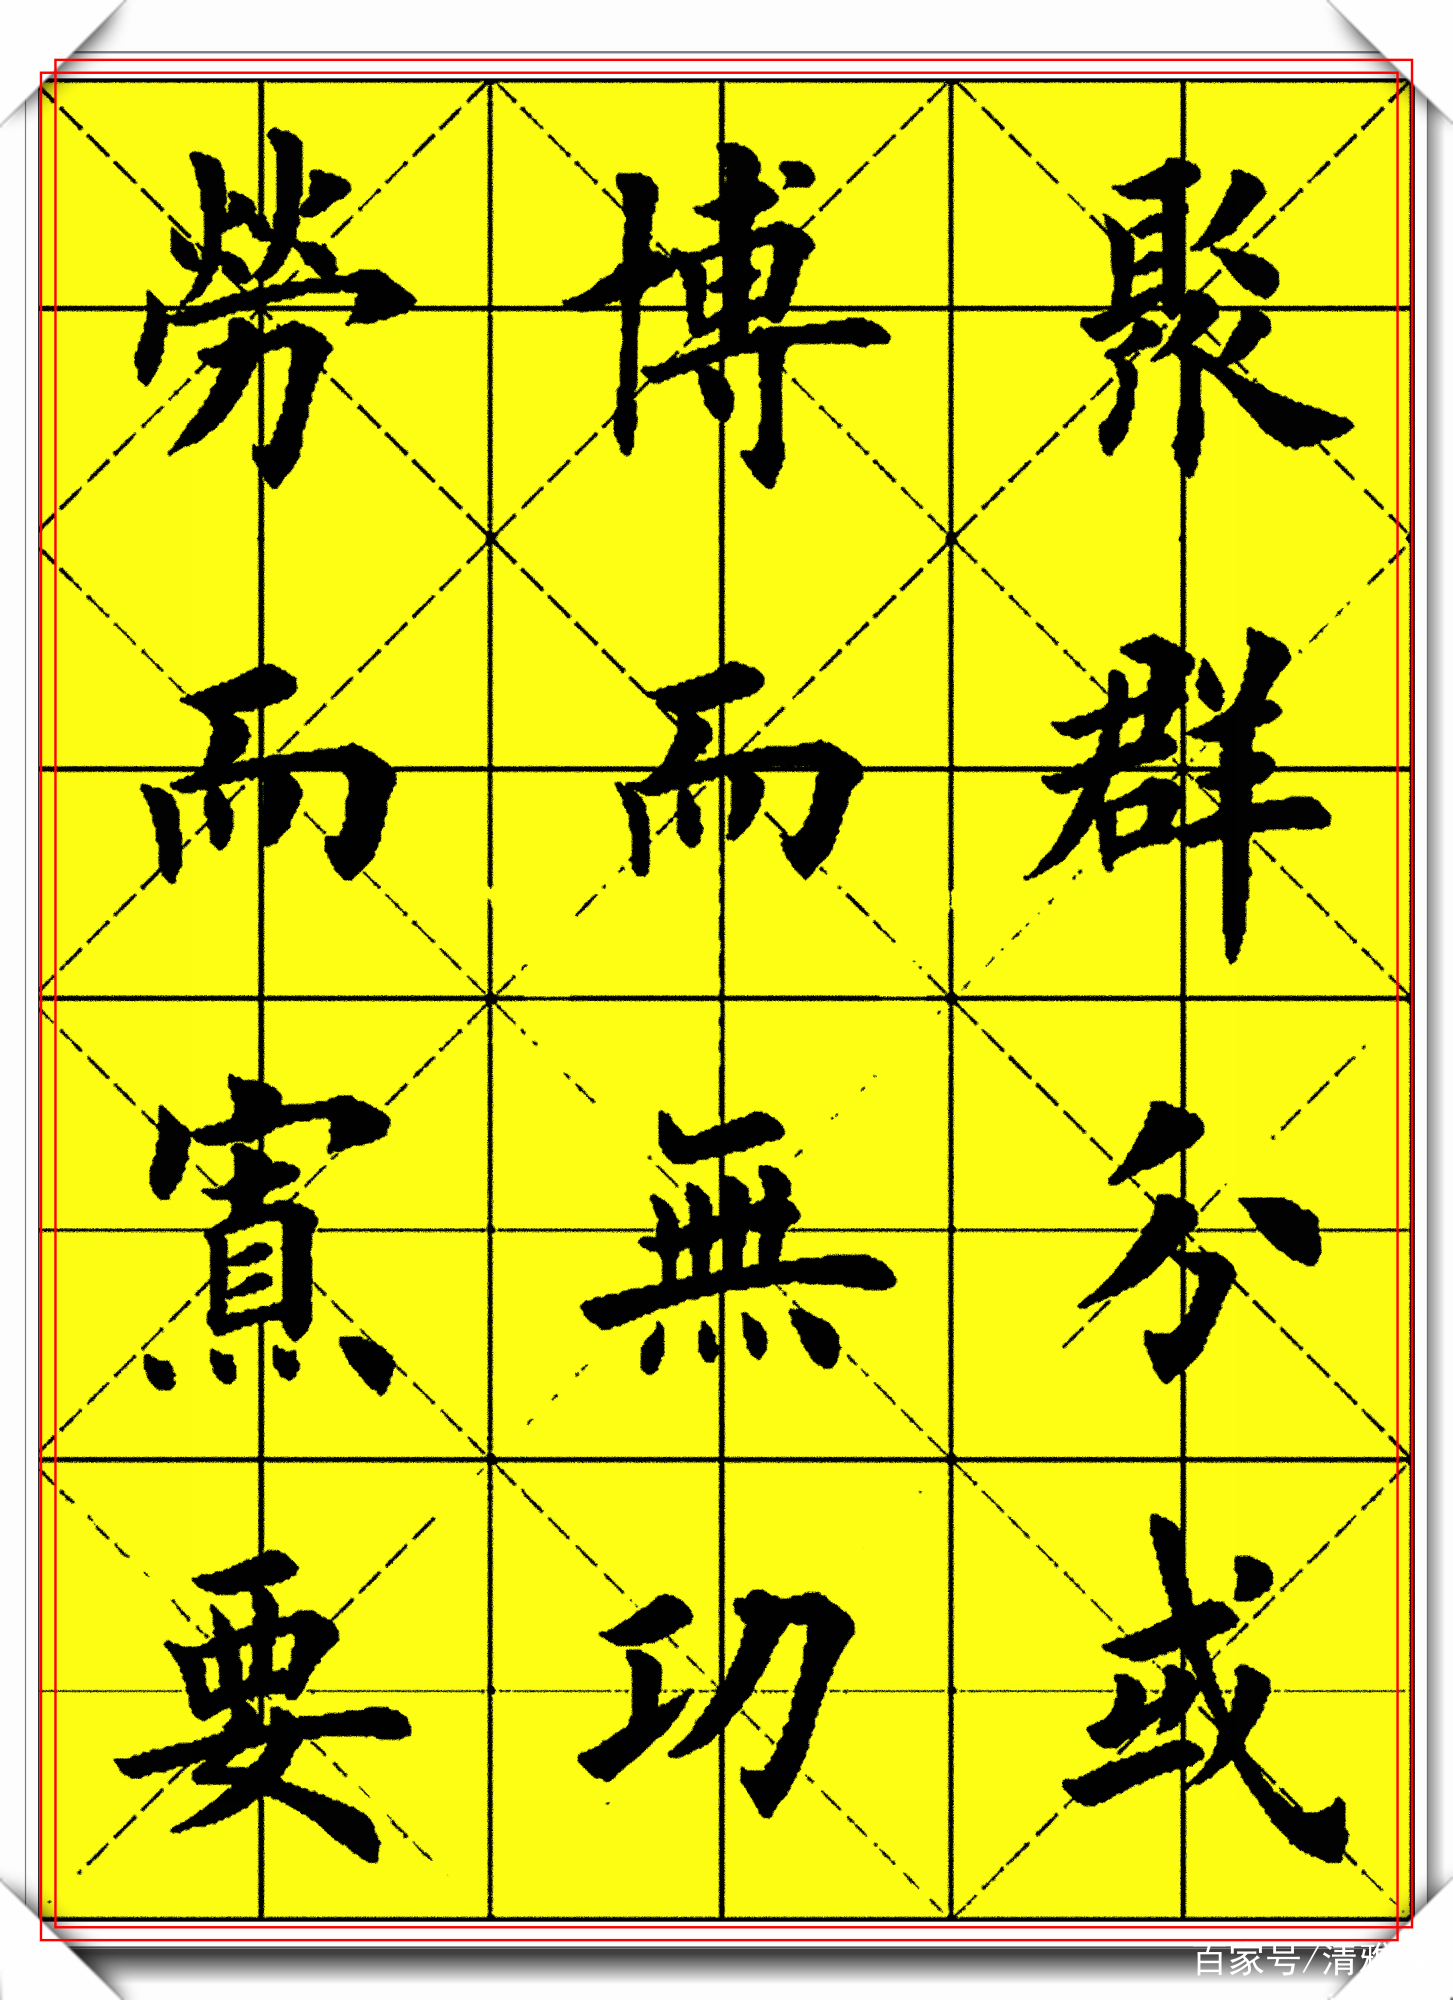 聚群分或
博而無功
勞而寡要
百家号/清雅